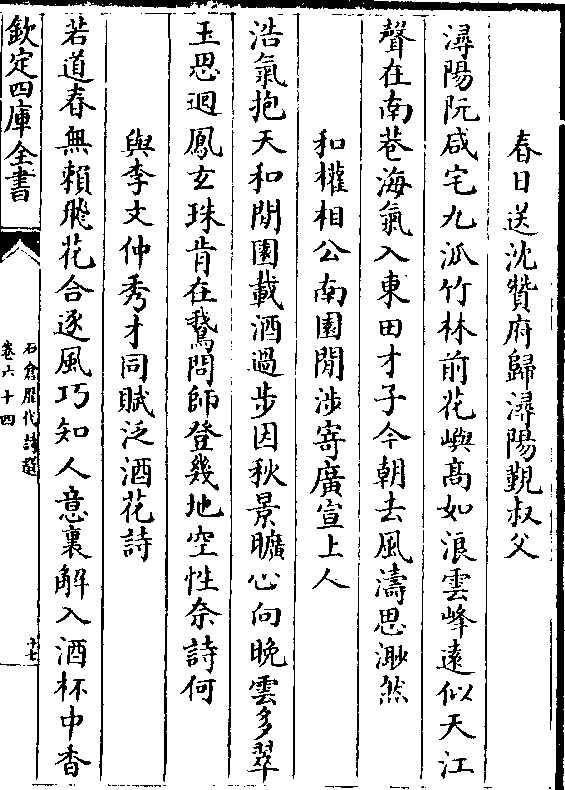 春日送沈贊府歸潯陽覲叔父
潯陽阮咸宅九泒竹林前花嶼髙如浪雲峰遠似天江
聲在南巷海氣入東田才子今朝去風濤思渺然
和權相公南園閒涉寄廣宣上人
浩氣抱天和閒園載酒過步因秋景曠心向晚雲多翠
玉思迴鳳玄珠肯在鵞問師登幾地空性奈詩何
與李文仲秀才同賦泛酒花詩
若道春無賴飛花合逐風巧知人意裏解入酒杯中香
欽定四庫全書
石倉歴代詩選
卷六十四
廿七